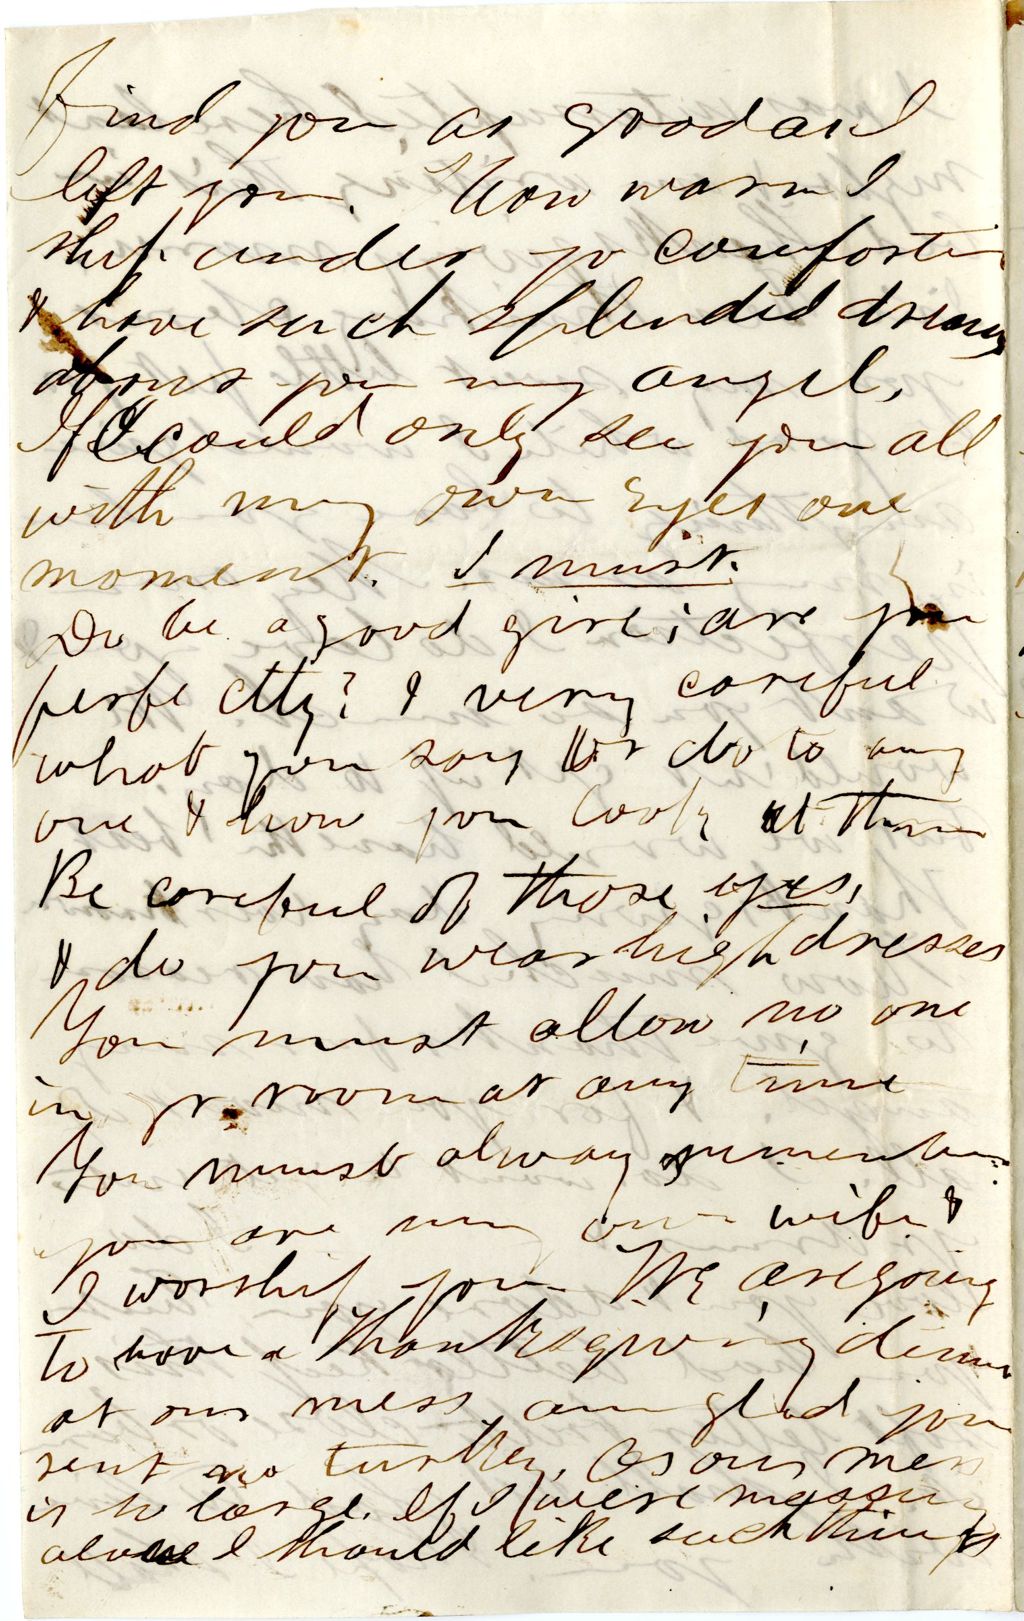 find you as good as I
left you. How warm I
slept under yr comforter
& have such splendid dreams
about you my angel.
If I could only see you all
with my own eyes one
moment. I must.
Do be a good girl; are you
perfectly? & very careful
what you say or do to any
one & how you look at them
Be careful of those eyes,
& do you wear high dresses
You must allow no one
in yr room at any time
You must always remember
you are my own wife &
I worship you We are going
to have a Thanksgiving dinner
at our mess, am glad you
sent no turkey, as our mess
is so large. If I were messing
alone I should like such things